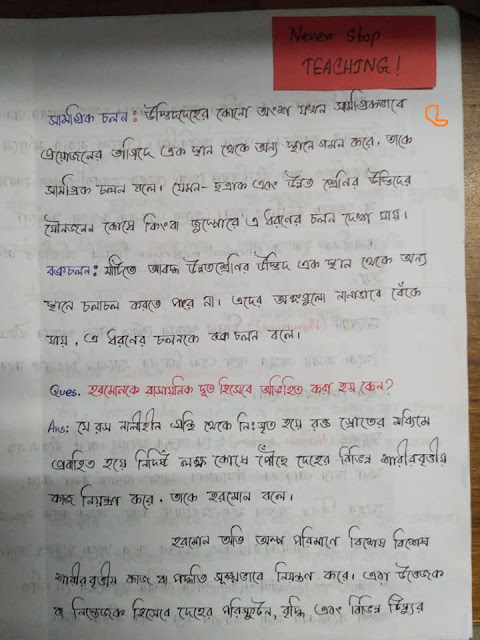 Never Stop
TEACHING!
৬
সামগ্রিক চলন: উদ্ভিদদেহের কোনো অংশ যখন সামগ্রিকভাবে
প্রয়োজনের তাগিদে এক স্থান থেকে অন্য স্থানে গমন করে, তাকে
সামগ্রিক চলন বলে। যেমন- ছত্রাক এবং উন্নত শ্রেণির উদ্ভিদের
যৌনজনন কোষে কিংবা জুস্পোরে এ ধরনের চলন দেখা যায়।
বক্রচলন: মাটিতে আবদ্ধ উন্নতশ্রেণির উদ্ভিদ এক স্থান থেকে অন্য
স্থানে চলাচল করতে পারে না। এদের অঙ্গগুলো নানাভাবে বেঁকে
যায়, এ ধরনের চলনকে বক্র চলন বলে।
Ques. হরমোনকে রাসায়নিক দূত হিসেবে অভিহিত করা হয় কেন?
Ans: যে রস নালীহীন গ্রন্থি থেকে নিঃসৃত হয়ে রক্ত স্রোতের মাধ্যমে
প্রবাহিত হয়ে নির্দিষ্ট লক্ষ কোষে পৌঁছে দেহের বিভিন্ন শারীরবৃত্তীয়
কাজ নিয়ন্ত্রণ করে, তাকে হরমোন বলে।
হরমোন অতি অল্প পরিমাণে বিশেষ বিশেষ
শারীরবৃত্তীয় কাজ বা পদ্ধতি সূক্ষ্মভাবে নিয়ন্ত্রণ করে। এরা উত্তেজক
বা নিস্তেজক হিসেবে দেহের পরিস্ফুটন, বৃদ্ধি এবং বিভিন্ন টিস্যুর